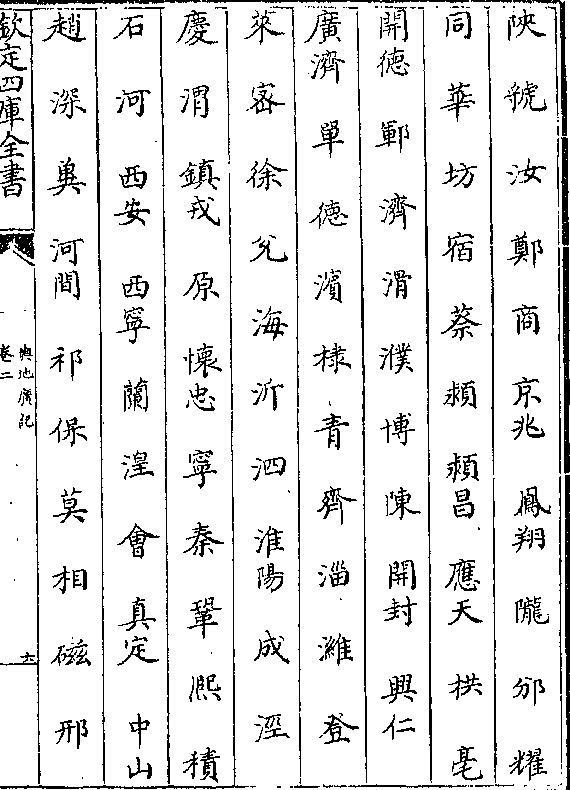 陜 虢 汝 鄭 商 京兆 鳳翔 隴 邠 耀
同 華 坊 宿 蔡 潁 潁昌 應天 拱 亳
開德 鄆 濟 滑 濮 博 陳 開封 興仁
廣濟 單 德 濱 棣 青 齊 淄 濰 登
萊 密 徐 兖 海 沂 泗 淮陽 成 涇
慶 渭 鎮戎 原 懷忠 寧 秦 鞏 熈 積
石 河 西安 西寧 蘭 湟 會 真定 中山
趙 深 兾 河間 祁 保 莫 相 磁 邢
欽定四庫全書
輿地廣記
卷二
六